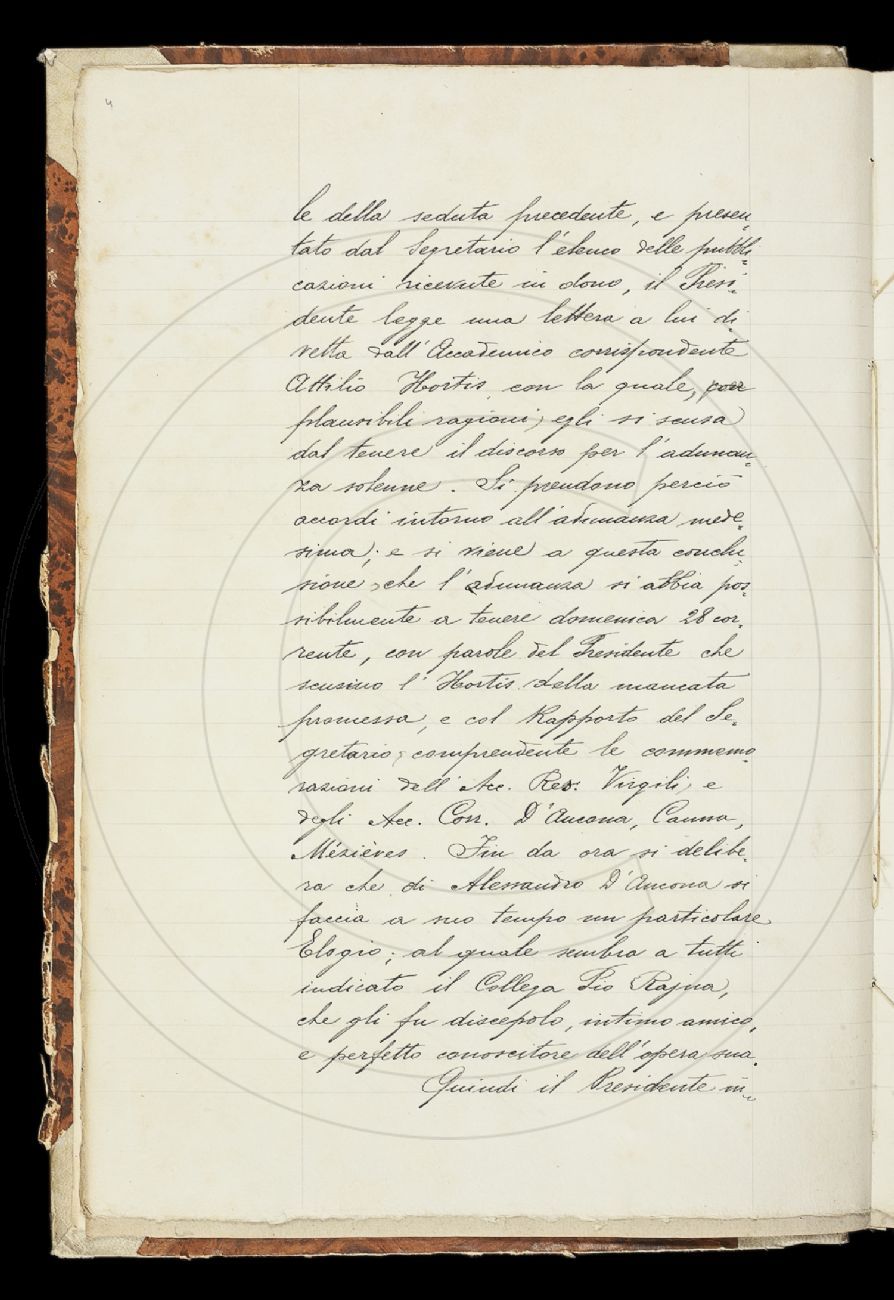 4
le della seduta precedente, e presen
tato dal Segretario l'elenco delle pubbli-
cazioni ricevute in dono, il Presi-
dente legge una lettera a lui di-
retta dall'Accademico corrispondente
Attilio Hortis, con la quale, per
plausibili ragioni, egli si scusa
dal tenere il discorso per l'adunan-
za solenne. Si prendono perciò
accordi intorno all'adunanza mede-
sima; e si viene a questa conclu-
sione, che l'adunanza si abbia pos-
sibilmente a tenere domenica 28 cor-
rente, con parole del Presidente che
scusino l'Hortis della mancata
promessa, e col Rapporto del Se-
gretario, comprendente le commemo-
razioni dell'Acc. Res. Virgili, e
degli Acc. Corr. D'Ancona, Canna,
Mézières. Fin da ora si delibe-
ra che di Alessandro D'Ancona si
faccia a suo tempo un particolare
Elogio; al quale sembra a tutti
indicato il Collega Pio Rajna,
che gli fu discepolo, intimo amico,
e perfetto conoscitore dell'opera sua.
Quindi il Presidente in-